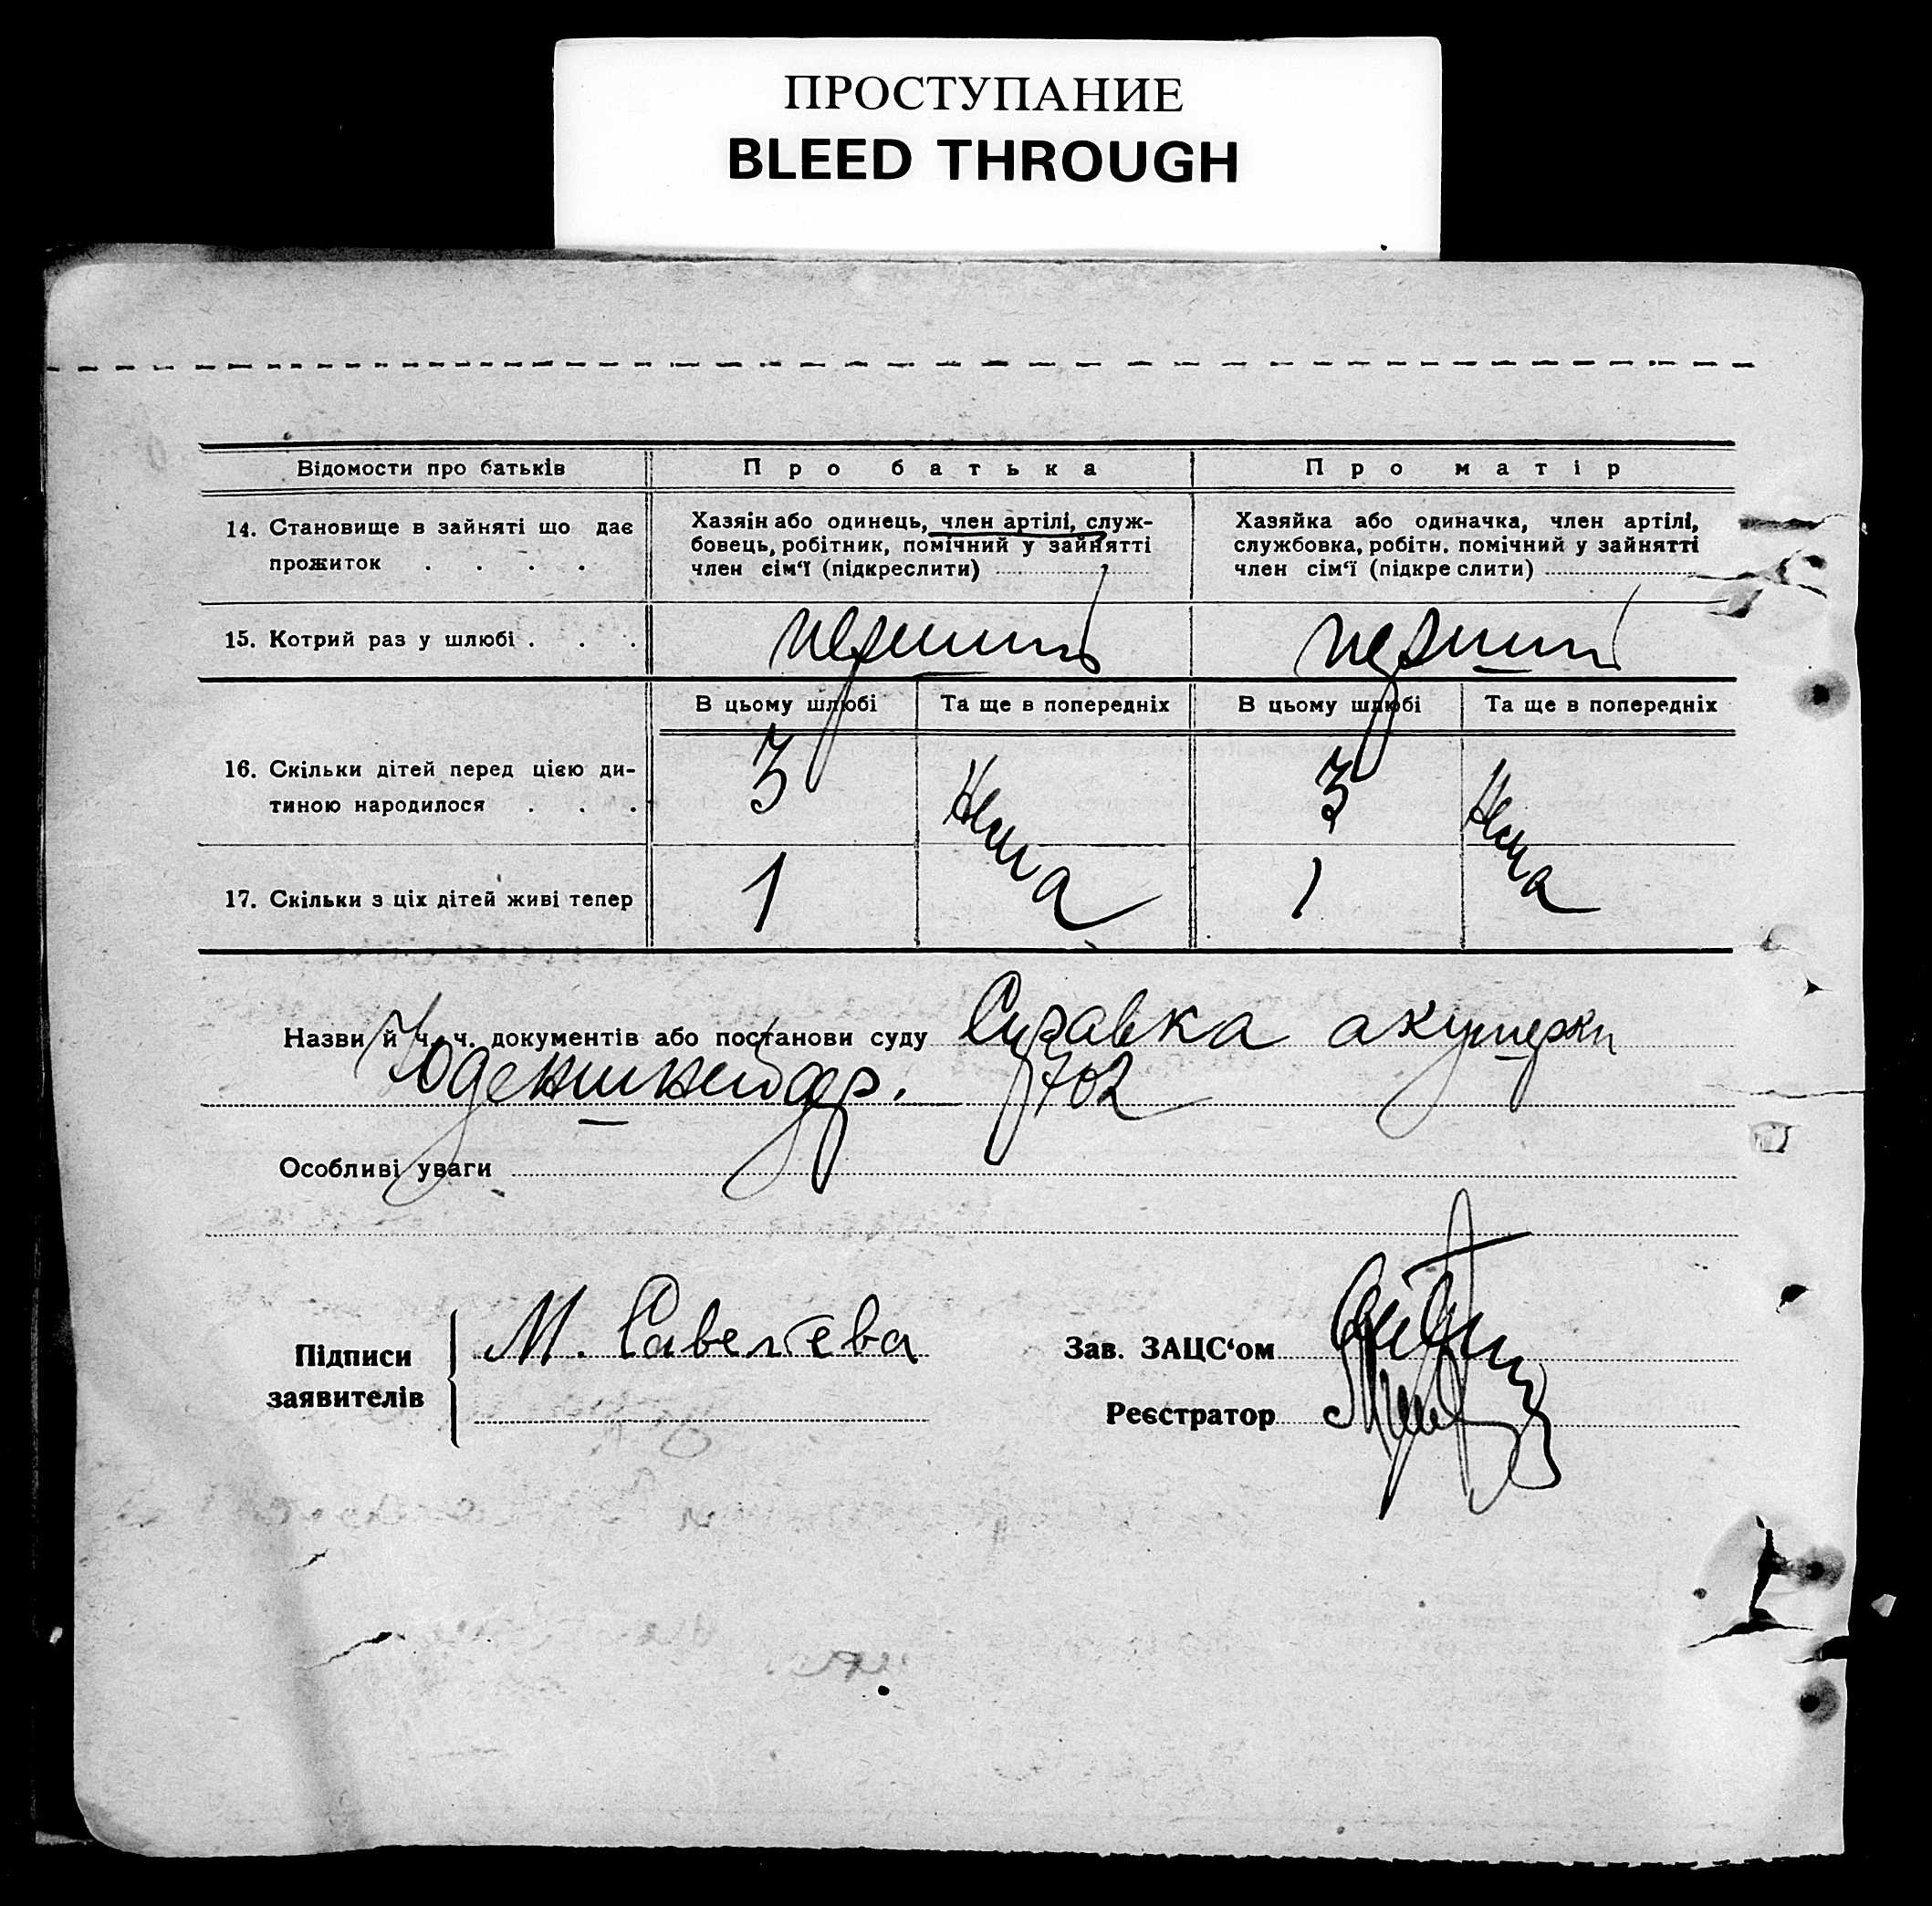 ПРОСТУПАНИЕ
BLEED THROUGH
Відомости про батьків
Про батька
Про матір
14. Становище в зайняті що дає
прожиток . . . .
Хазяін або одинець, член артілі, служ-
бовець, робітник, помічний у зайнятті
член сім‘ї (підкреслити)
Хазяйка або одиначка, член артілі,
службовка, робітн. помічний у зайнятті
член сім‘ї (підкре слити)
15. Котрий раз у шлюбі . . .
перший
перший
В цьому шлюбі
Та ще в попередніх
В цьому шлюбі
Та ще в попередніх
16. Скільки дітей перед цією ди-
тиною народилося . . .
3
Нема
3
Нема
17. Скільки з ціх дітей живі тепер
1
1
Назви й ч. ч. документів або постанови суду Справка акушерки
702
Особливі уваги
Підписи
заявителів
М. Савелєва
Зав. ЗАЦС‘ом
Реєстратор